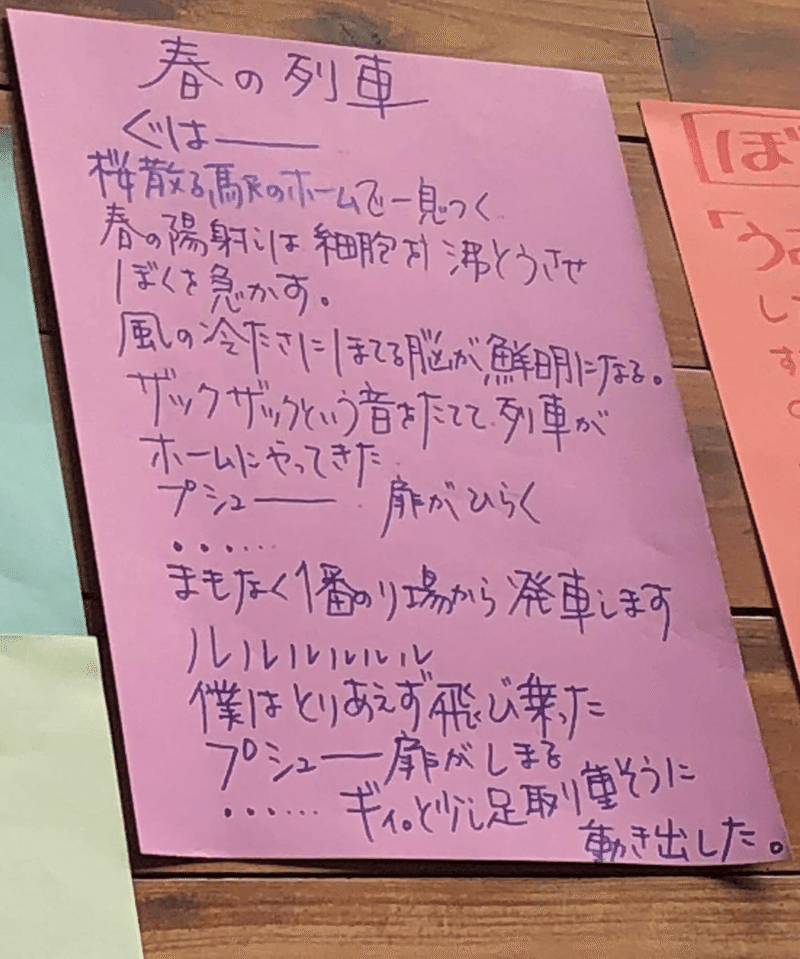 春の列車
ぐは――
桜散る駅のホームで一息つく
春の陽射しは細胞を沸とうさせ
ぼくを急かす。
風の冷たさにほてる脳が鮮明になる。
ザックザックという音をたてて列車が
ホームにやってきた
プシュー―― 扉がひらく
・・・・・・
まもなく1番のり場から発車します
ルルルルルル
僕はとりあえず飛び乗った
プシュー―扉がしまる
・・・・・・ギィ。と少し足取り重そうに
動き出した。
ぼ
「う
し
す
の